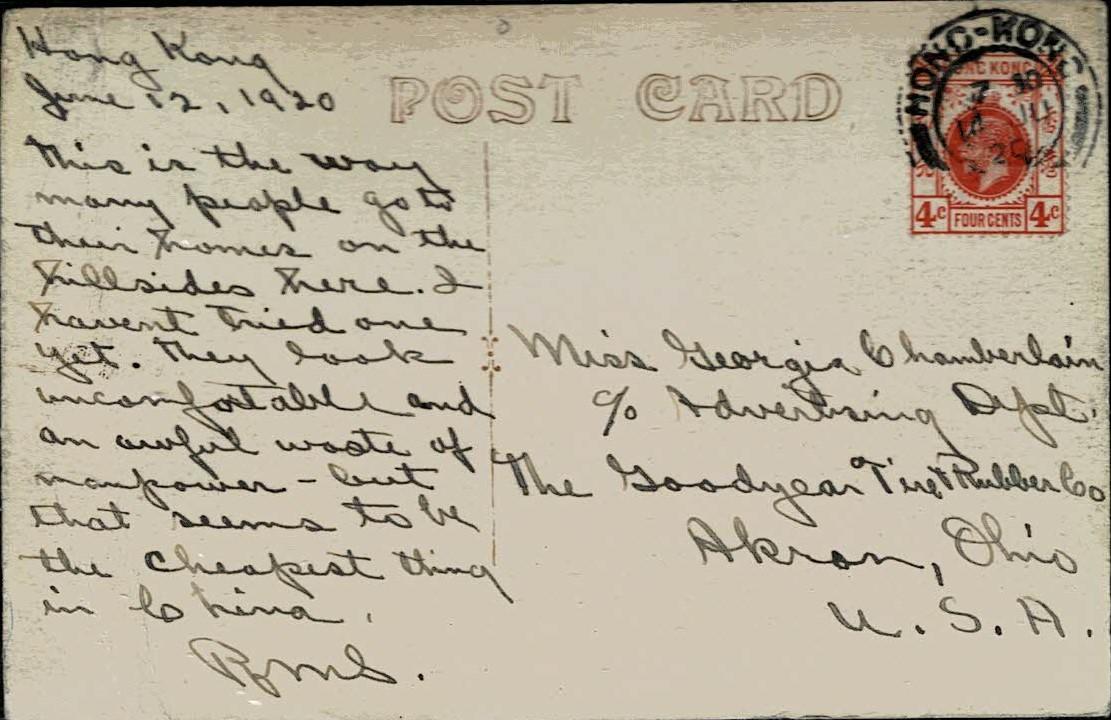 Hong Kong
June 12, 1920
POST CARD
This is the way
many people go to
their homes on the
hillsides here. I
havent tried one
yet. They look
uncomfortable and
an awful waste of
manpower - but
that seems to be
the cheapest thing
in China.
HONG-KONG
HONG KONG
4c FOUR CENTS 4c
Miss Georgia Chamberlain
c/o Advertising Dept.
The Goodyear Tire & Rubber Co
Akron, Ohio
U. S. A.